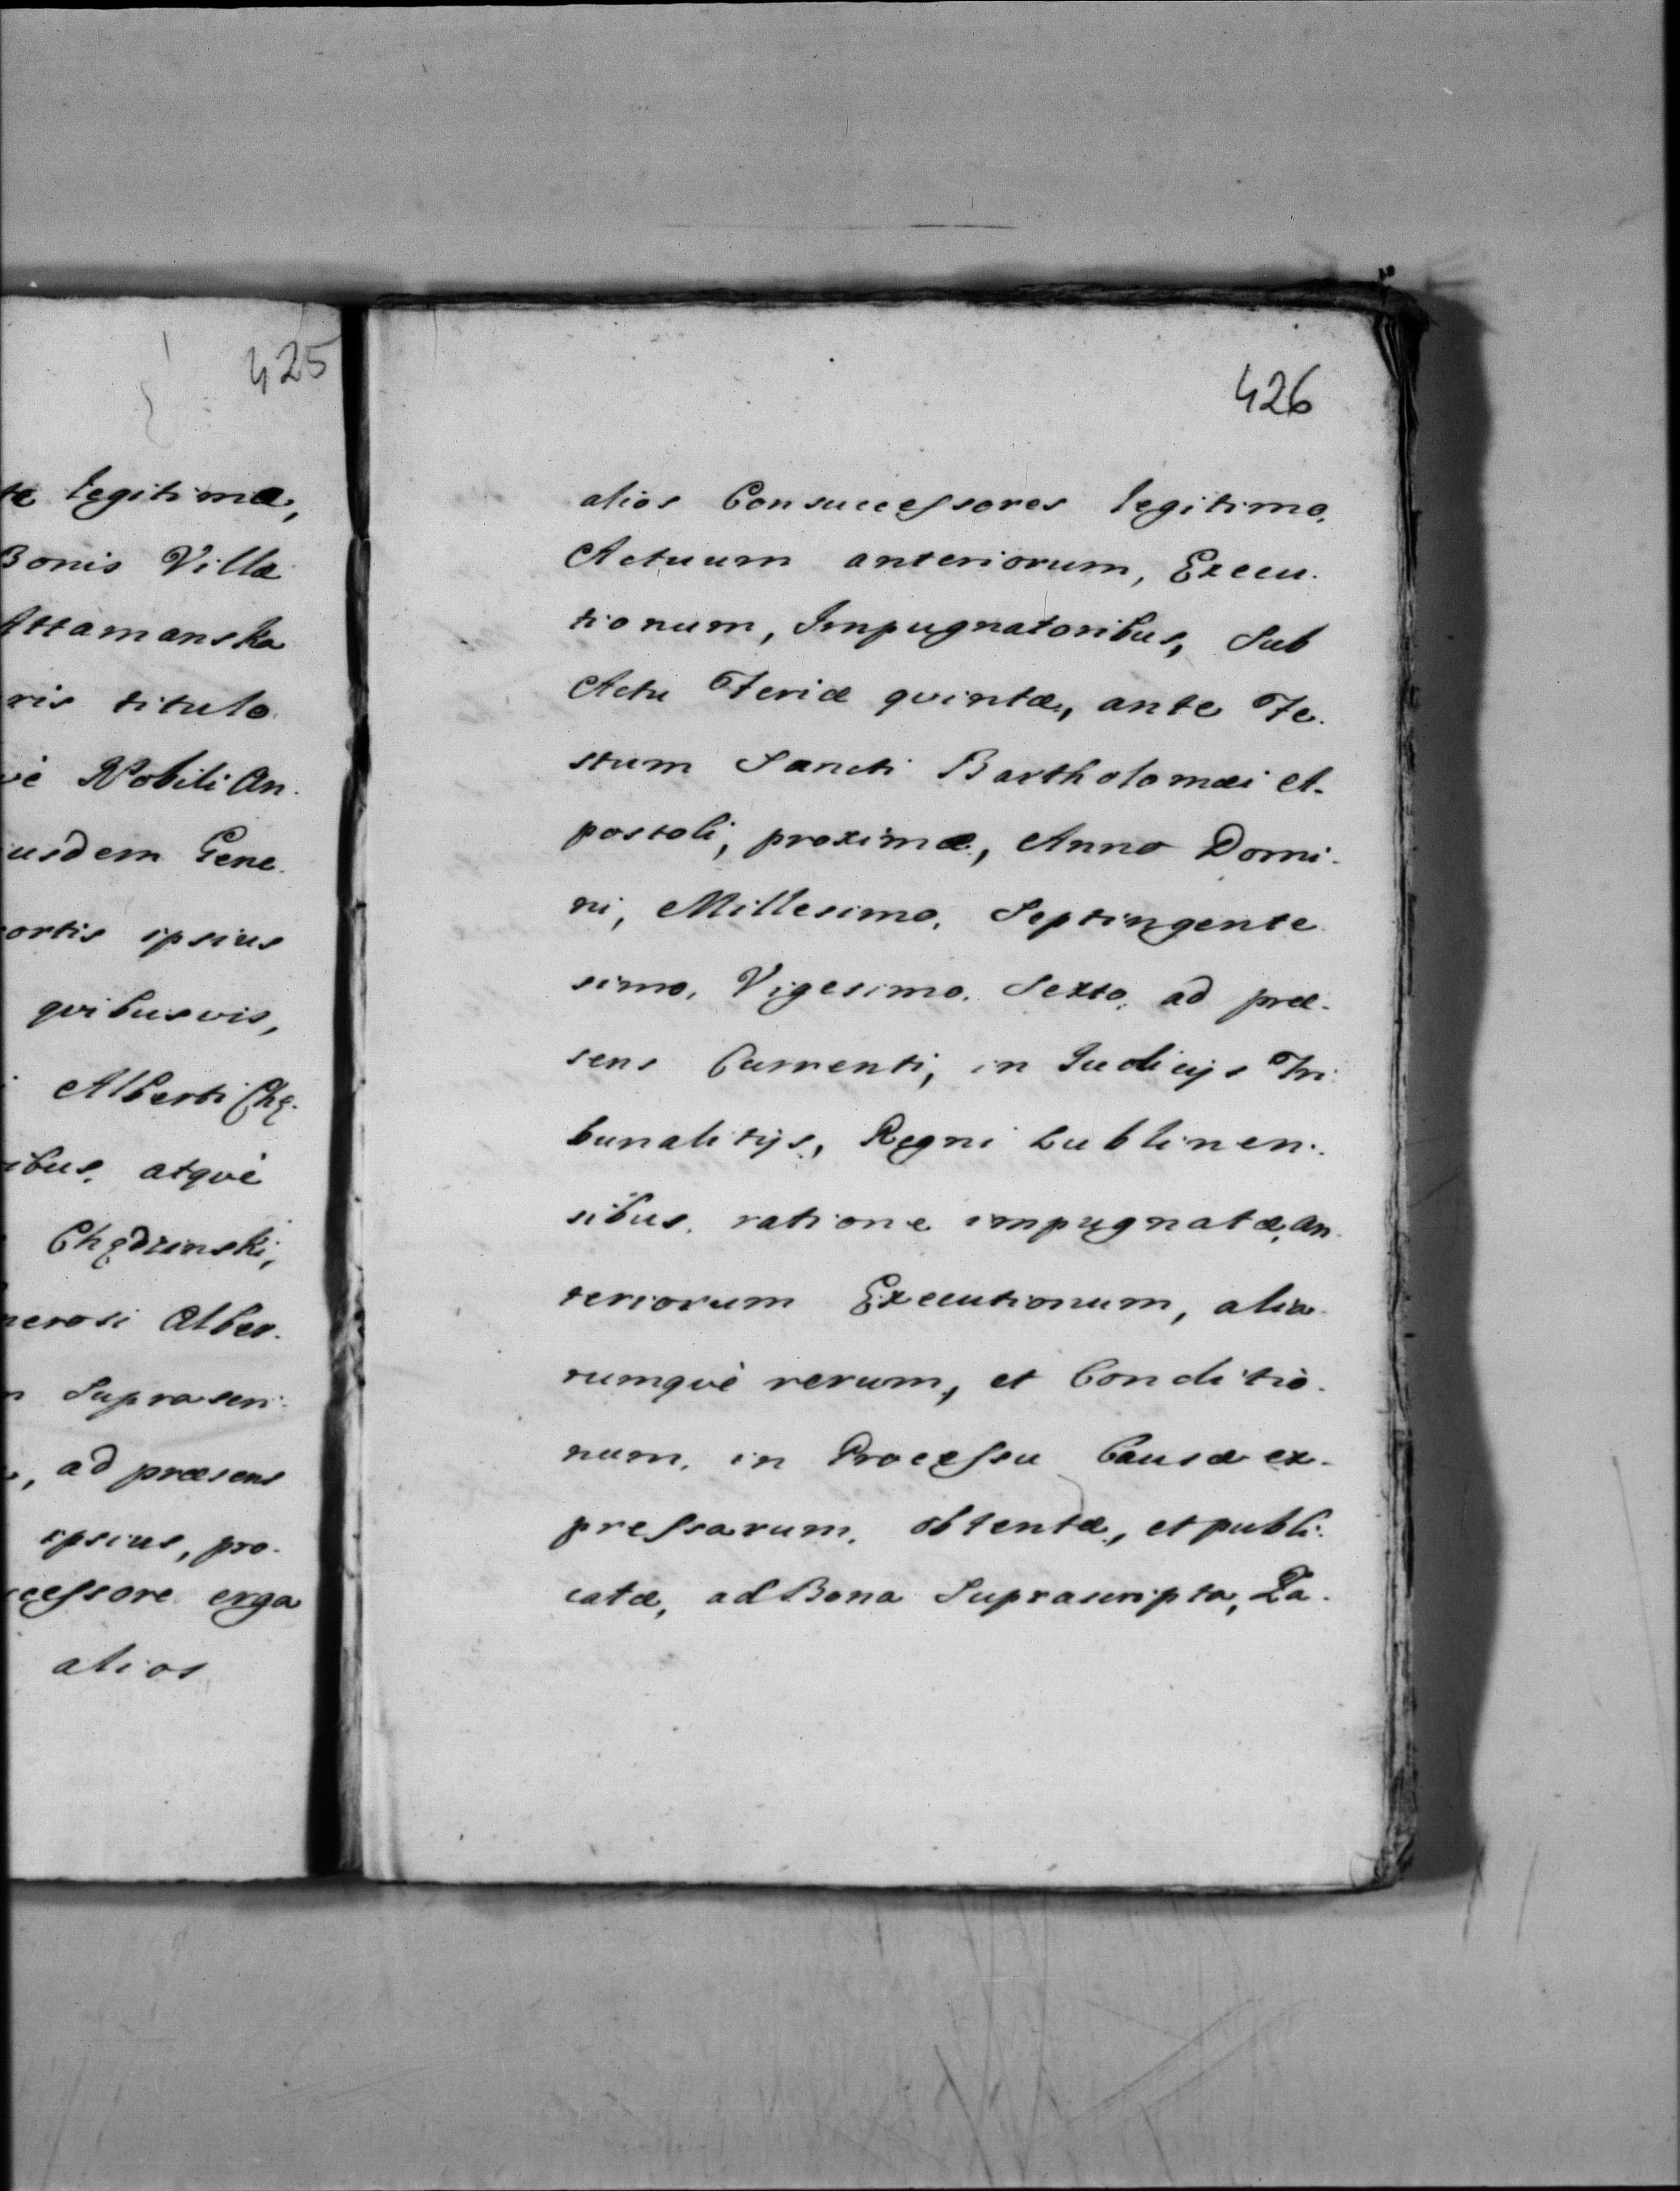 425
te legitimæ,
Bonis Villæ
Attamanska
ris titulo
vè Nobili An.
usdem Gene.
ortis ipsius
quibusvis,
Alberti Chę.
ibus, atquè
Chędzinski,
nerosi Alber.
Suprascri.
, ad præsens
ipsius, pro.
ccessore erga
alios
426
alios Consuccessores legitimo,
Actuum anteriorum, Execu.
tionum, Impugnatoribus, Sub
Actu Feriæ quintæ, ante Fe.
stum Sancti Bartholomæi A.
postoli, proximæ, Anno Domi.
ni, Millesimo, Septingente
simo, Vigesimo, Sexto, ad præ.
sens Currenti, in Judicijs Tri
bunalitijs, Regni Lublinen.
sibus, ratione impugnatæ, an.
teriorum Executionum, alia
rumquè rerum, et Conditio.
num, in Processu Causæ ex.
pressarum, obtentæ, et publi.
catæ, ad Bona Suprascripta, Za.